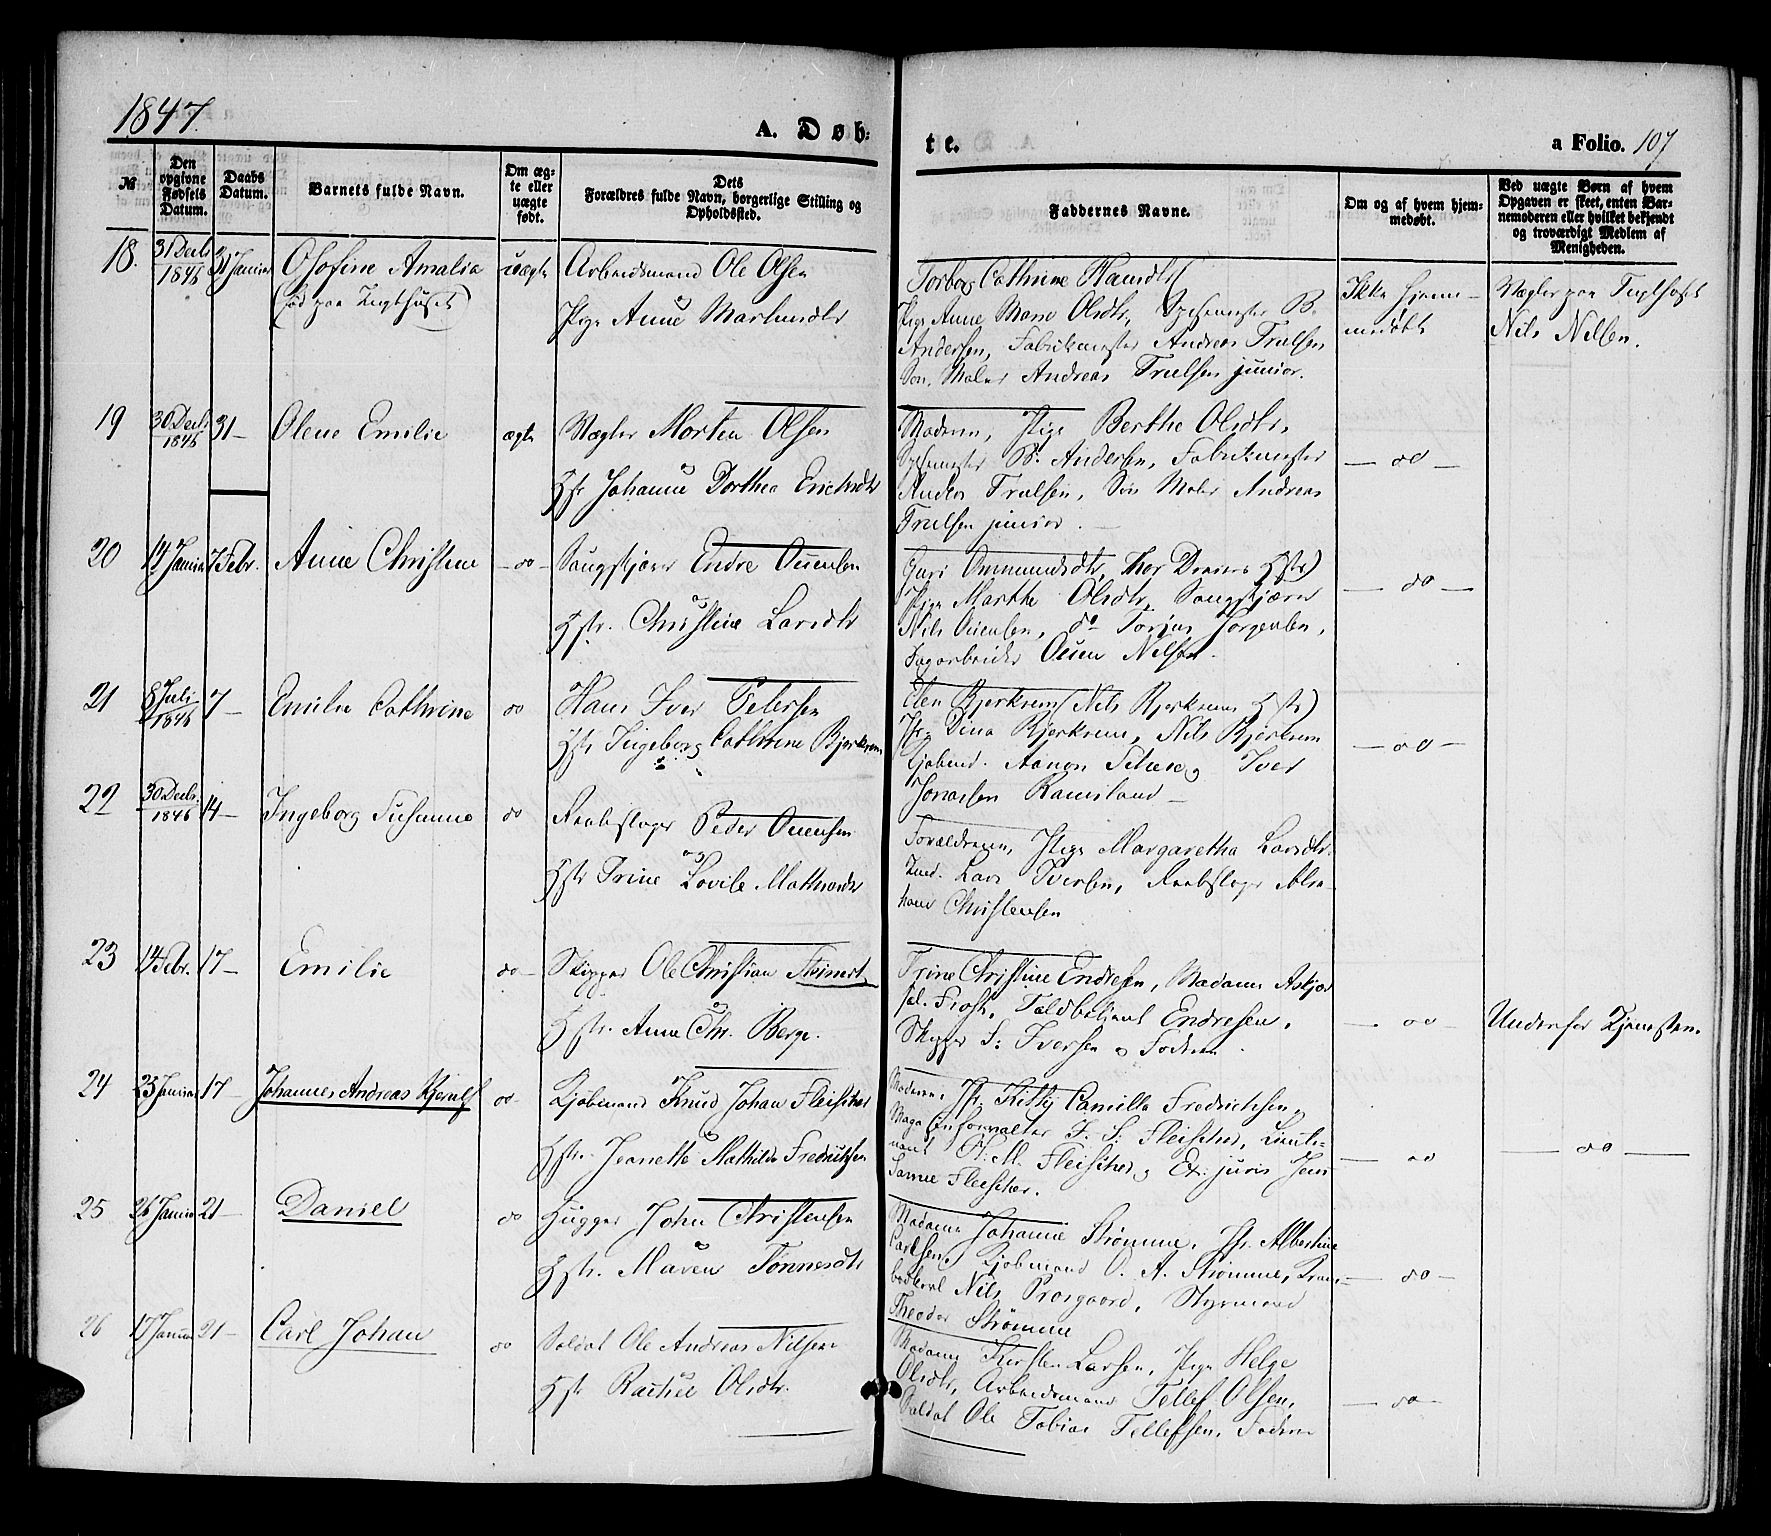 1847.
A. Døb:
te.
a Folio. 107
№
Den opgivne Fødsels Datum.
Daabs Datum.
Barnets fulde Navn.
Om ægte eller uægte født.
Dets Forældres fulde Navn, borgerlige Stilling og Opholdssted.
Faddernes Navne.
Om og af hvem hjemmedøbt.
Ved uægte Børn af hvem Opgaven er skeet, enten Barnemoderen eller hvilket bekjendt og troværdigt Medlem af Menigheden.
18. 31 Decb 1846 31 Januar Osofine Amalia uægte Arbeidsmand Ole Olsen
(død paa Tugthuset)
Pige Anne
Torborg Cathrine
Pige Anne Marie Olsdtr, B.
Andersen, Fabrikmester Andreas Trulsen
Søn, Maler Andreas Trulsen junior.
Ikke hjemmedøbt
Vægter paa Tugthuset
Nils Nilsen.
19 30 Decb 1846 31 – Olene Emilie ægte Vægter Morten Olsen
Hstr Johanne Dorthea Erichsdtr
Moderen, Pige Berthe Olsdtr,
B. Andersen, Fabrikmester
Trulsen, Søn Maler Andreas
Trulsen junior.
– do –
20 14 Januar 7 Febr. Anne Christine – do – Endre Ouensen
Hstr. Christine Larsdtr
Guri Ommundsdtr,
Pige Marthe Olsdtr,
Nils Ouensen, do Torjus Jørgensen,
Ouen Nilsen.
– do –
21 8 Juli 1846 7 – Emilie Cathrine do Hans Iver Petersen
Hstr Ingeborg Cathrine Bjerkrem
Elen Bjerkrem (Nils Bjerkrems Hstr)
Jfr. Dina Bjerkrem, Nils Bjerkrem
Kjøbmd. Aanon Iver
Jonassen Ramsland –
– do –
22 30 Decb. 1846 14 – Ingeborg Susanne do Reebslager Peder Ouensen
Hstr Trine Lovise Mathisdtr
Forældrene, Pige Margaretha Larsdtr.
Lars Iversen, Reebslager Abra-
ham Christensen
23 14 Febr. 17 – Emilie do – Skipper Ole Christian
Hstr. Anne Chr. Berge.
Trine Christine Endresen, Madame Askjær
Toldbetjent Endresen,
Skipper S. Iversen og Faderen.
– do –
Undenfor Tjenesten.
24 23 Januar 17 – Johannes Andreas do – Kjøbmand Knud Johan Fleischer
Hstr. Jeanette Mathilde Fredrichsen
Moderen, Jfr. Kitty Camilla Fredrichsen,
Magasinforvalter F. S. Fleischer, Lieute-
nant O. M. Fleischer, Ex. juris Jens
Fleischer.
– do –
– do –
25 26 Januar 21 – Daniel do Hugger John Christensen
Hstr. Maren Tønnesdtr
Madame Johanne Strømme, Jfr. Albertine
Carlsen, Kjøbmand O. A. Strømme,
Nils Prosgaard, Styrmand
Theodor Strømme
– do –
26 17 Januar 21 – Carl Johan do Soldat Ole Andreas Nilsen
Hstr Rachel Olsdtr.
Madame Kirsten Larsen, Pige Helge
Olsdtr, Arbeidsmand Tellef Olsen,
Soldat Ole Tobias Tellefsen, Faderen
– do –